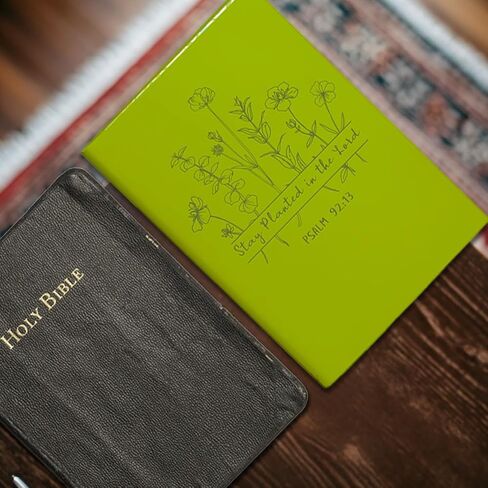 HOLY BIBLE
Stay Planted in the Lord
PSALM 92:13